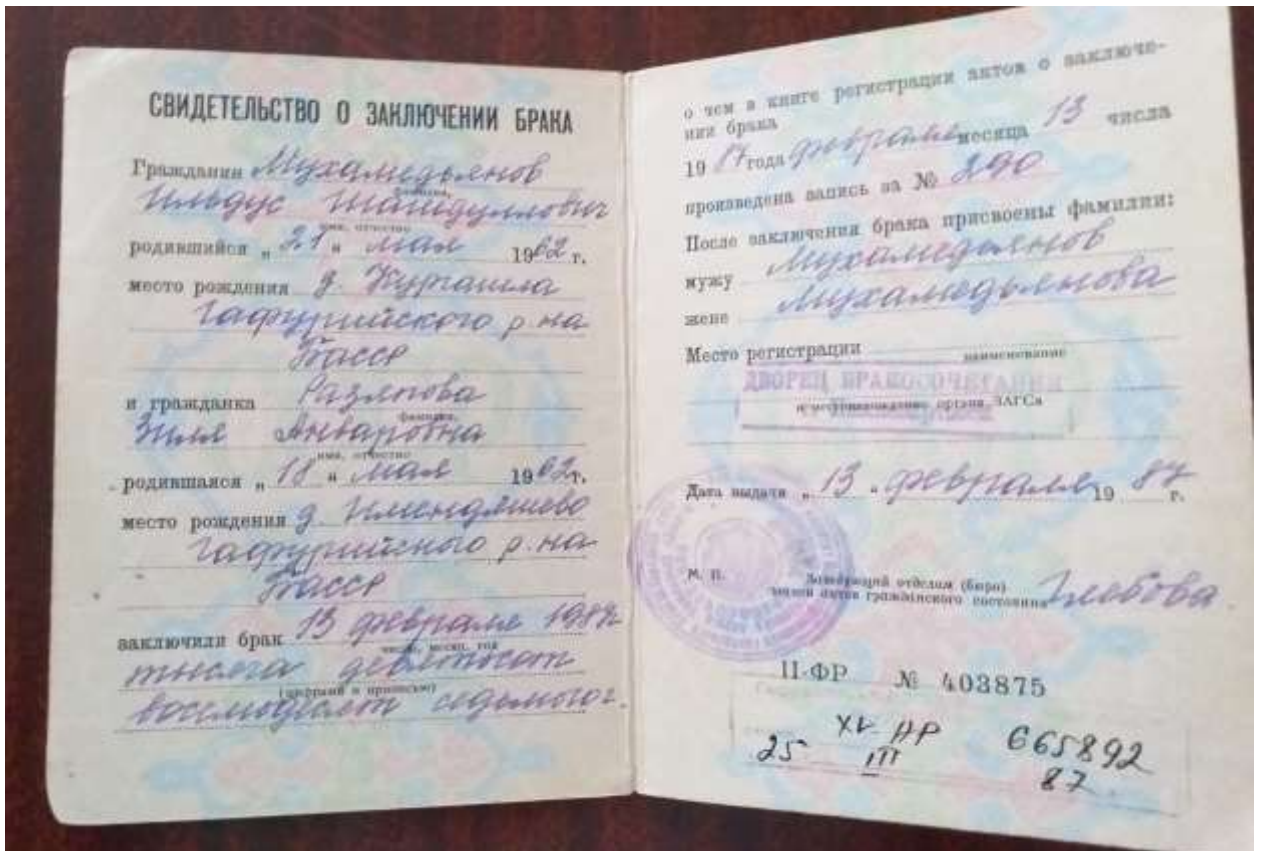 СВИДЕТЕЛЬСТВО О ЗАКЛЮЧЕНИИ БРАКА
Гражданин Мухамедьянов
фамилия,
Ильдус
имя, отчество
родившийся „21“ мая 1962 г.
место рождения д. Кургашла
Гафурийского р-на
Басср
и гражданка Разяпова
фамилия,
Зиля Анваровна
имя, отчество
родившаяся „18“ мая 1962 г.
место рождения д. Имендяшево
Гафурийского р-на
Басср
заключили брак 13 февраля 1987г
число, месяц, год
тысяча девятьсот
(цифрами и прописью)
восемьдесят седьмого г.
о чем в книге регистрации актов о заключе-
нии брака
19 87 года февраля месяца 13 числа
произведена запись за № 290
После заключения брака присвоены фамилии:
мужу Мухамедьянов
жене Мухамедьянова
Место регистрации
наименование
ДВОРЕЦ БРАКОСОЧЕТАНИЯ
и местонахождение органа ЗАГСа
Дата выдачи „13“ февраля 19 87 г.
М. П.
Заведующий отделом (бюро)
записи актов гражданского состояния Глебова
II-ФР № 403875
XV НР 665892
25 III 87